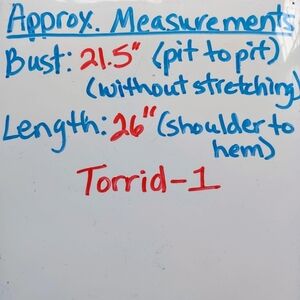 Approx. Measurements
Bust: 21.5" (pit to pit)
(without stretching)
Length: 26" (shoulder to
hem)
Torrid-1